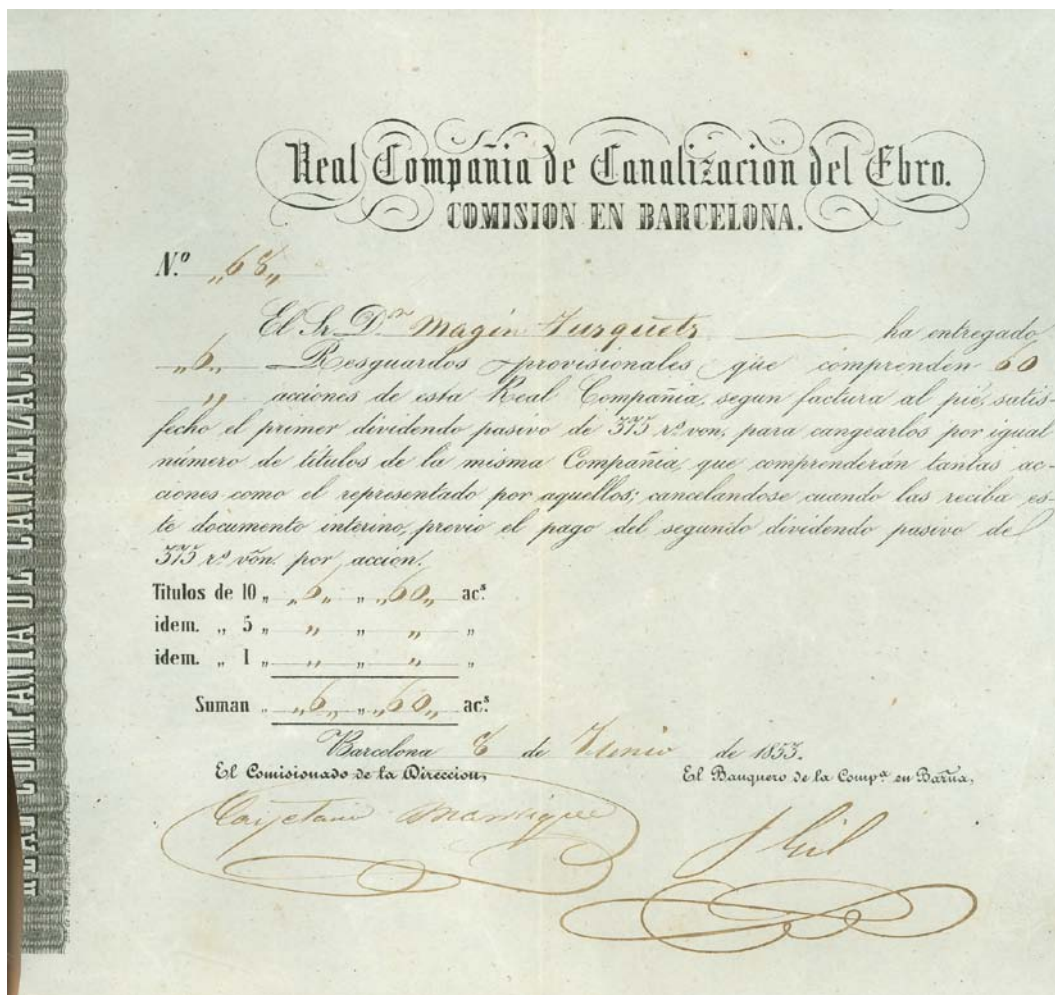 REAL COMPAÑIA DE CANALIZACION DEL EBRO
Real Compañia de Canalizacion del Ebro.
COMISION EN BARCELONA.
N.º „68„
El Sr. D.n Magin Tusquets ha entregado
„6„ Resguardos provisionales que comprenden 60
„ acciones de esta Real Compañia, segun factura al pié, satis-
fecho el primer dividendo pasivo de 375 r.s von. para cangearlos por igual
número de titulos de la misma Compañia, que comprenderán tantas ac-
ciones como el representado por aquellos; cancelandose cuando las reciba es-
te documento interino, previo el pago del segundo dividendo pasivo de
375 r.s vōn. por accion.
Titulos de 10 „ „6„ „ „60„ ac.s
idem. „ 5 „ „ „ „ „
idem. „ 1 „ „ „ „ „
Suman „ „6„ „ „60„ ac.s
Barcelona 8 de Junio de 1853.
El Comisionado de la Direccion, El Banquero de la Comp.a en Barña,
Cayetano Manrique
J Gil